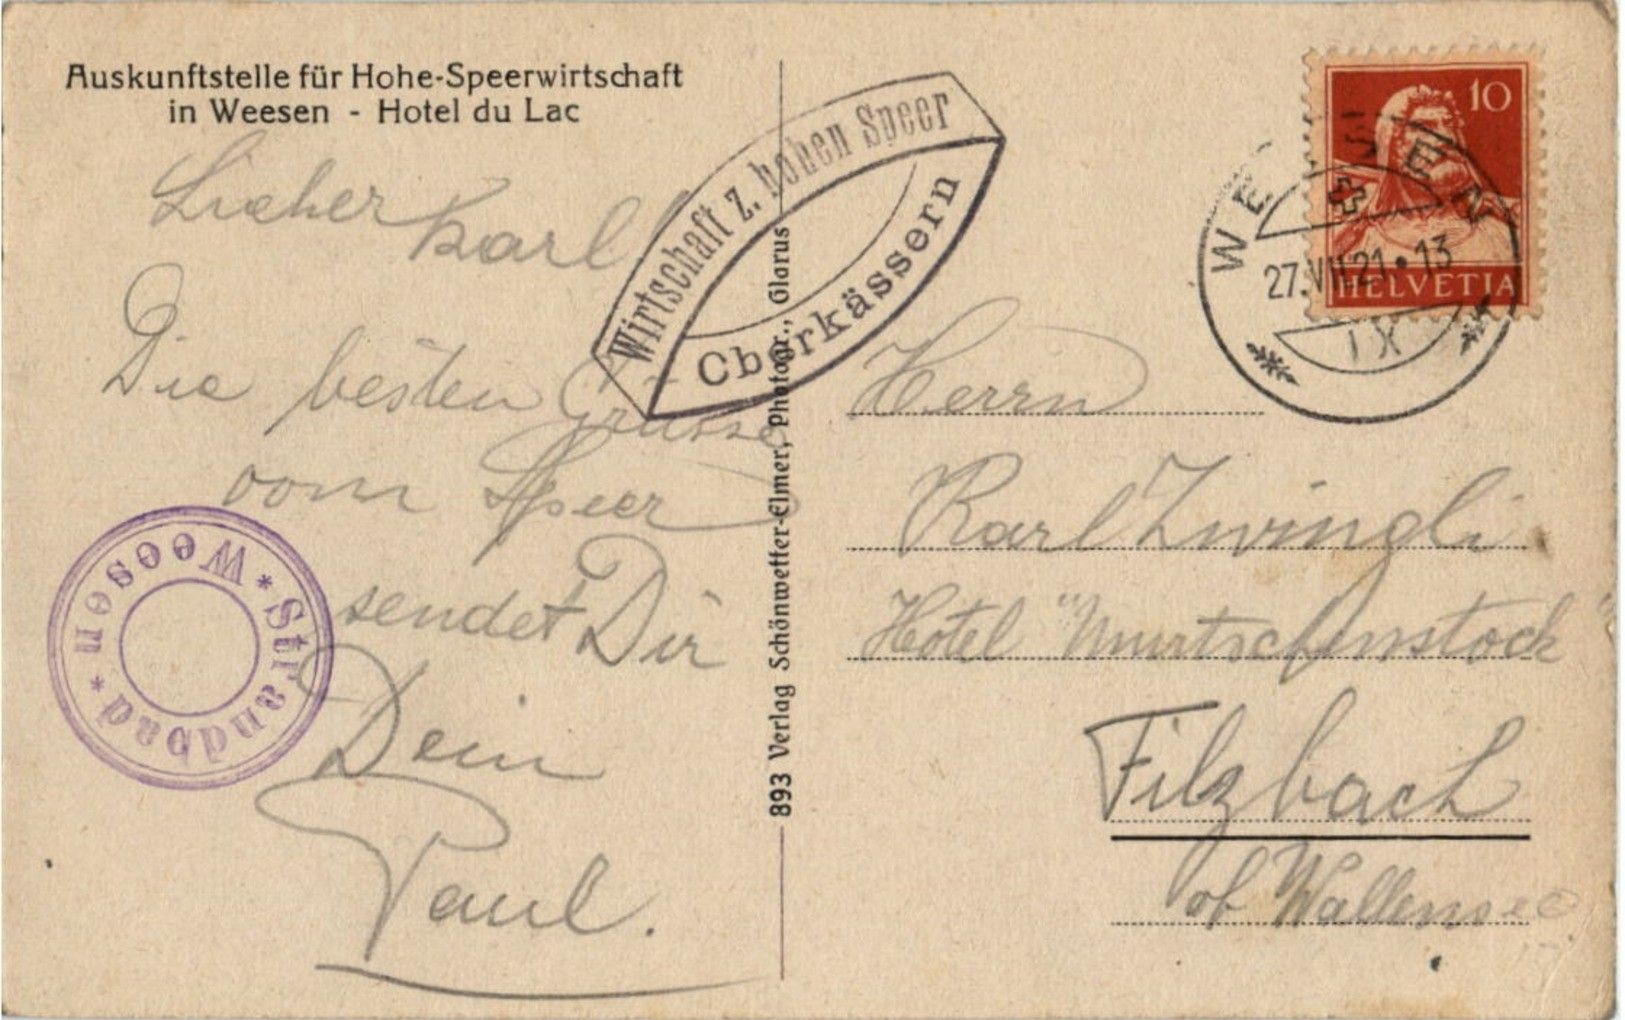 Auskunftstelle für Hohe-Speerwirtschaft
in Weesen - Hotel du Lac
Lieber Karl
Die besten Grüsse
vom Speer
sendet Dir
Dein
Paul.
Wirtschaft z. hohen Speer
Oberkässern
* Strandbad * Weesen
893 Verlag Schönwetter-Elmer, Photogr., Glarus
10
HELVETIA
WEESEN
27.VII.21•13
IX
Herrn
Karl Zwingli
Hotel "Murtschenstock"
Filzbach
ob Wallensee